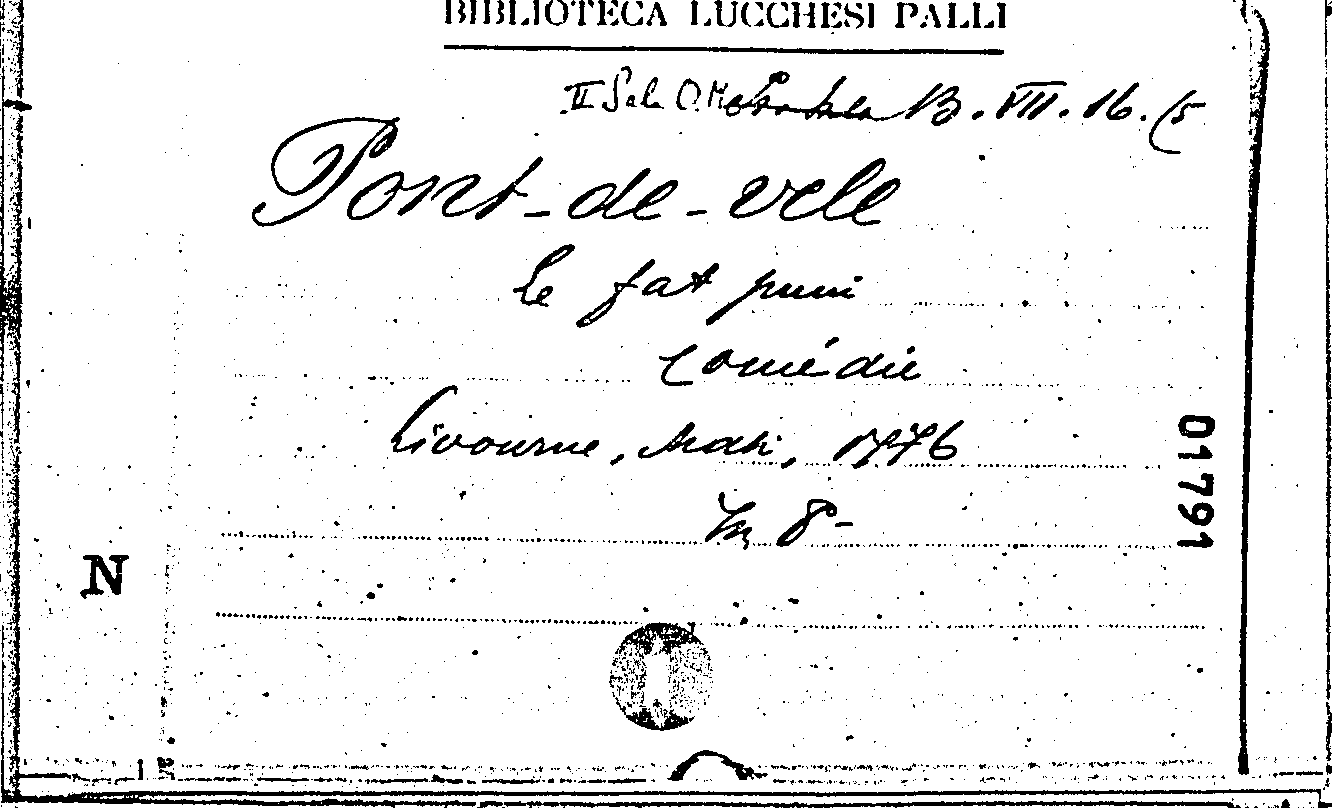 BIBLIOTECA LUCCHESI PALLI
II Sala B. VII. 16. (5
Pont-de-vele
Le fat puni
Comédie
Livourne, Masi, 1776
In 8-
01791
N